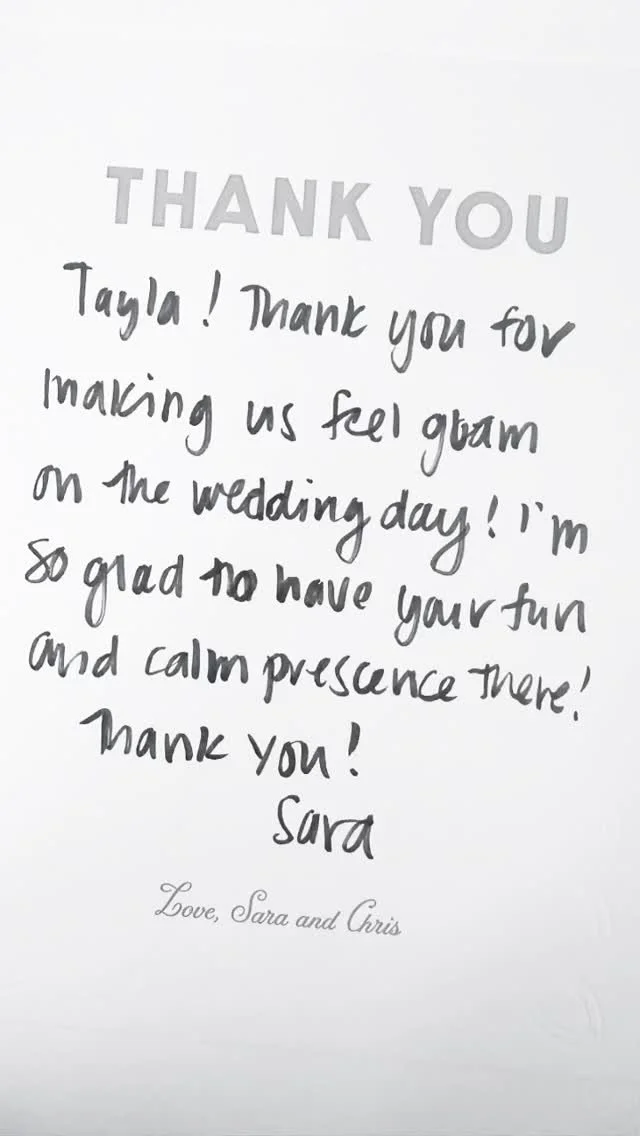 THANK YOU
Tayla! Thank you for
making us feel glam
on the wedding day! I'm
so glad to have your fun
and calm prescence there!
Thank you!
Sara
Love, Sara and Chris